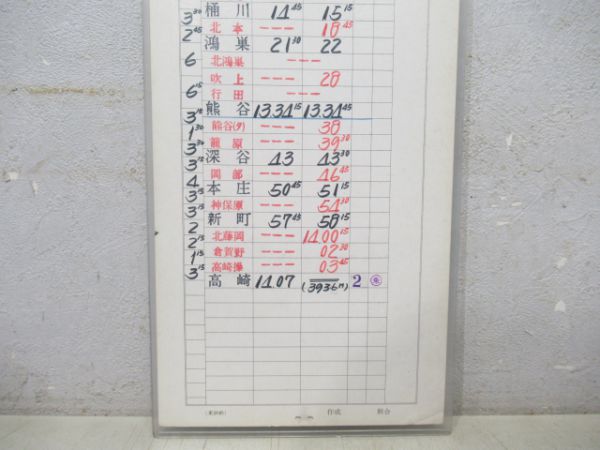 桶川 14 45 15 15
3 30
北本 --- 18 45
2 45
鴻巣 21 30 22
6
北鴻巣 ---
吹上 --- 28
6 15
行田 ---
熊谷 13.34 15 13.34 45
3 15
熊谷(タ) --- 38
1 30
籠原 --- 39 30
3 30
深谷 43 43 30
3 15
岡部 --- 46 45
4
本庄 50 45 51 15
3 15
神保原 --- 54 30
3 15
新町 57 45 58 15
2
北藤岡 --- 14.00 15
2 15
倉賀野 --- 02 30
1 15
高崎操 --- 03 45
3 15
高崎 14.07 (393.6M) 2
作成 照合